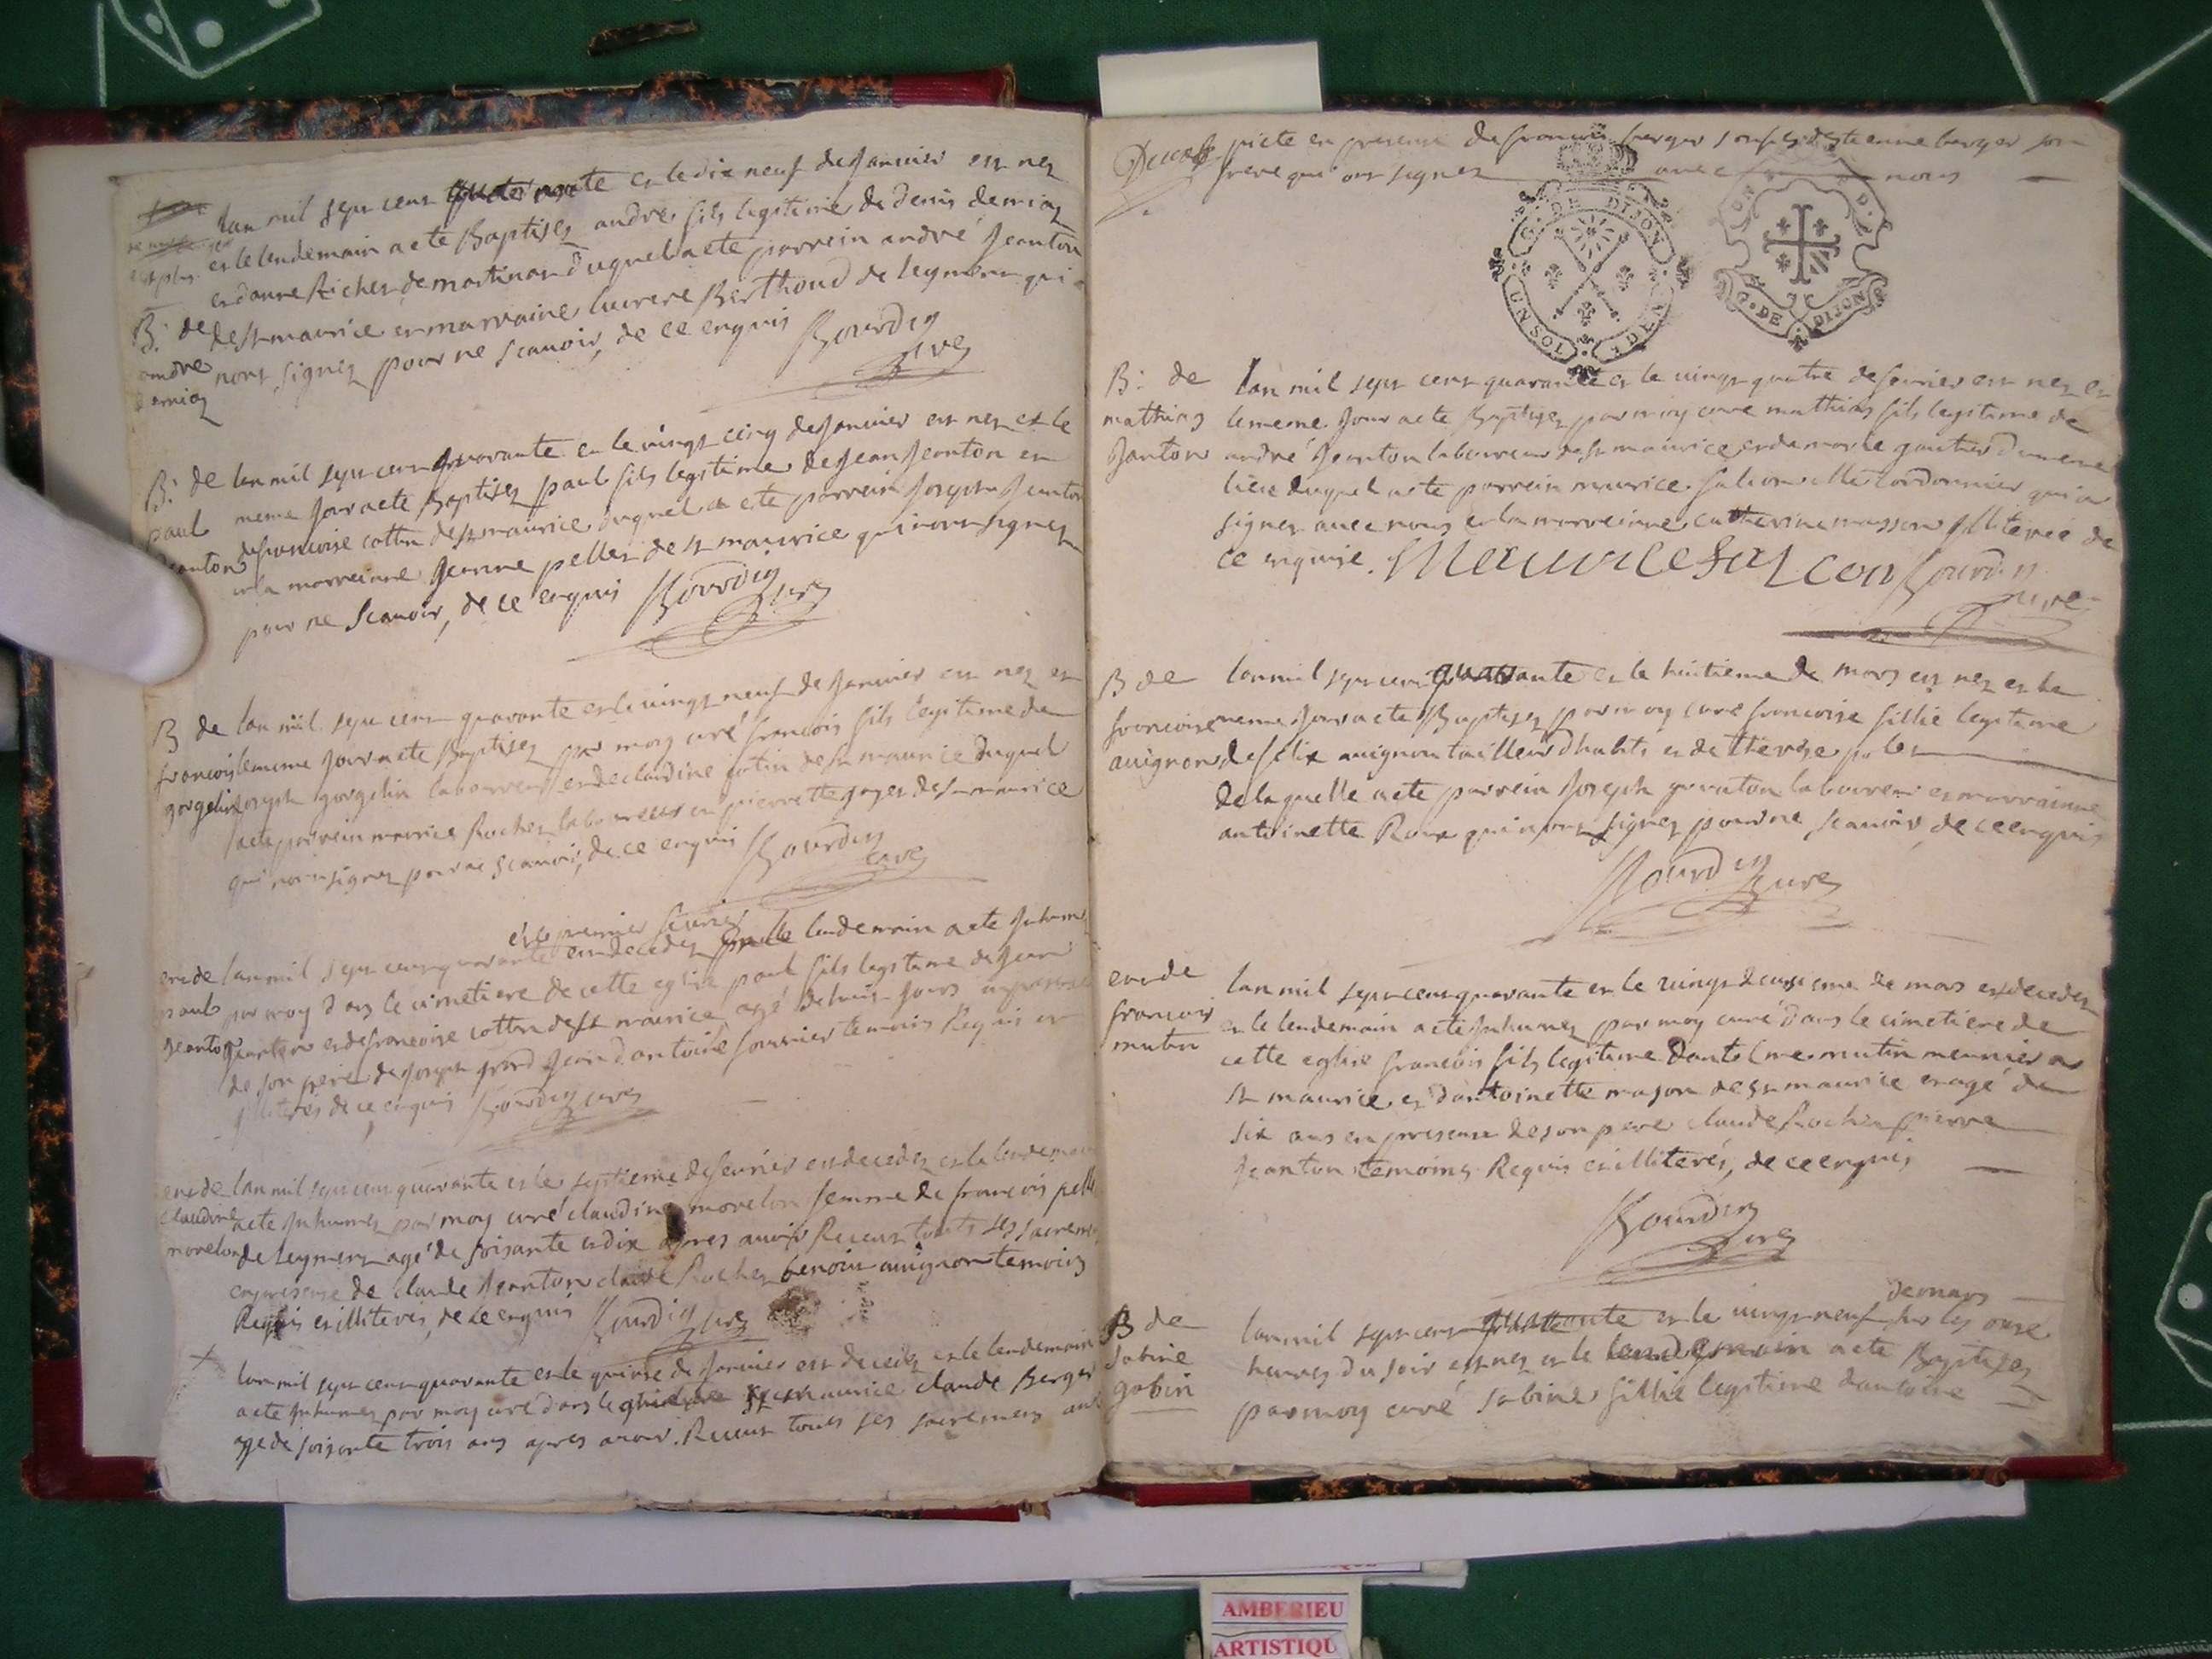 lan mil sept cent quarante et le dix neuf de Janvier est nez
et le lendemain a ete Baptisez andre fils legitime de denis demiaz
et danne Richer de martinaz duquel a ete parrein andré Jeanton
de st maurice et marraine lucrece Berthoud de leyment qui
nont signez pour ne scauoir, de ce enquis Bourdin
curé
B: de
andre
demiaz
B: de
paul
Jeanton
lan mil sept cent quarante et le vingt cinq de Janvier est nez et le
meme Jour a ete Baptisez paul fils legitime de Jean Jeanton et
de francoise cottin de st maurice duquel a ete parrein Joseph Jeanton
et la marreinne Jeanne pellet de st maurice qui nont signez
pour ne Scauoir, de ce enquis Bourdin
curé
B de
francois
gorgelin
lan mil sept cent quarante et le vingt neuf de Janvier est nez et
le meme Jour a ete Baptisez par moy curé francois fils legitime de
Joseph gorgelin laboureur et de claudine cotin de st maurice duquel
a ete parrein maurice Rochez laboureur et pierrette gayet de st maurice
qui nont signez pour ne Scauoir, de ce enquis Bourdin
curé
et le premier feurier
ent de
paul
Jeanton
lan mil sept cent quarante est decedez et le lendemain a ete Inhumé
par moy dans le cimetiere de cette eglise paul fils legitime de Jean
Jeanton et de francoise cotton de st maurice agé de huit Jours en presence
de son pere de Joseph grand Jean dantoine fournier temoins Requis et
Illiterés de ce enquis Bourdin curé
ent de
claudine
morelon
lan mil sept cent quarante et le septieme de feurier est decedez et le lendemain
a ete Inhumez par moy curé claudine morelon femme de francois pellet
de leyment agé de soisante et dix apres auoir Receut touts ses sacremens
en presence de claude Jeanton claude Rochez benoit auignon temoins
Requis et illiterés, de ce enquis Bourdin curé
lan mil sept cent quarante et le quinse de Janvier est decedez et le lendemain
a ete Inhumez par moy curé dans le cimetiere st maurice claude Berger
agé de soisante trois ans apres auoir Receut touts ses sacremens auec
piete en presence de francois berger son fils destienne berger son
frere qui ont signez auec nous
G. DE DIJON
UN SOL
G. DE DIJON
B: de
mathias
Janton
lan mil sept cent quarante et le vingt quatre de feurier est nez et
le meme Jour a ete Baptisez par moy curé mathias fils legitime de
andré Jeanton laboureur de st maurice et de marie gautier du meme
lieu duquel a ete parrein maurice falcon cordonnier qui a
signez auec nous et la marreinne catherine masson Illiterée de
ce enquise. Maurice falcon Bourdin
curé
B de
francoise
auignon
lan mil sept cent quarante et le huitieme de mars est nez et le
meme Jour a ete Baptisez par moy curé francoise fillie legitime
de felix auignon tailleur dhabits et de therese
de laquelle a ete parrein Joseph Jeanton laboureur et marrainne
antoinette Roux qui nont signez pour ne scauoir, de ce enquis
Bourdin curé
ent de
francois
mutin
lan mil sept cent quarante et le vingt deusieme de mars est decedez
et le lendemain a ete Inhumez par moy curé dans le cimetiere de
cette eglise francois fils legitime dantelme mutin meunier a
st maurice et dantoinette mason de st maurice et agé de
six ans en presence de son pere claude Rochez pierre
Jeanton temoins Requis et illiterés, de ce enquis
Bourdin
curé
de mars
B de
Sabine
gobin
lan mil sept cent quarante et le vingt neuf sur les onse
heures du soir est nez et le lendemain a ete Baptisez
par moy curé Sabine fillie legitime dantoine
AMBERIEU
ARTISTIQU